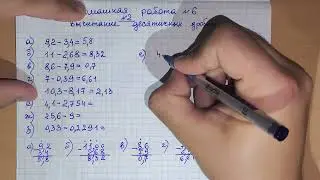 машная работа №6
№3
вычитание десятичных дроб
а) 9,2-3,4=5,8
б) 11-2,68=8,32
в) 8,6-7,9=0,7
г) 7-0,39=6,61
д) 10,3-8,17=2,13
е) 4,1-2,754=
ж) 25,6-9=
з) 0,33-0,2291=
е) 4
а) 9,2 б) 11,00 в) 8,6 г)
3,4 2,68 7,9
5,8 8,32 0,7